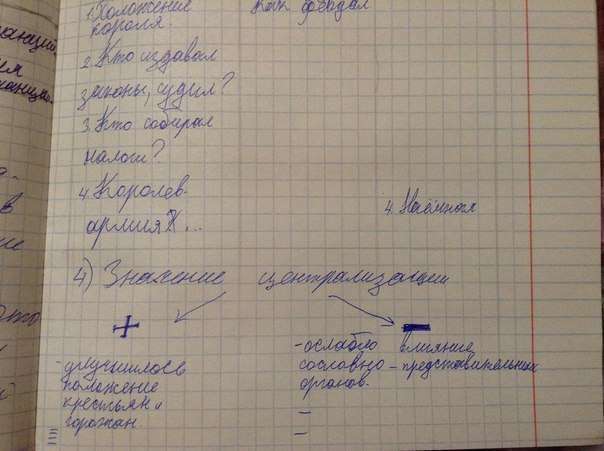 1. Положение Как феодал
короля.
2. Кто издавал
законы, судил?
3. Кто собирал
налоги?
4. Королев.
армия ...
4. Наёмная
4) Значение централизации
+ –
- улучшилось
положение
крестьян и
горожан.
- ослабло влияние
сословно - представительных
органов.
–
–